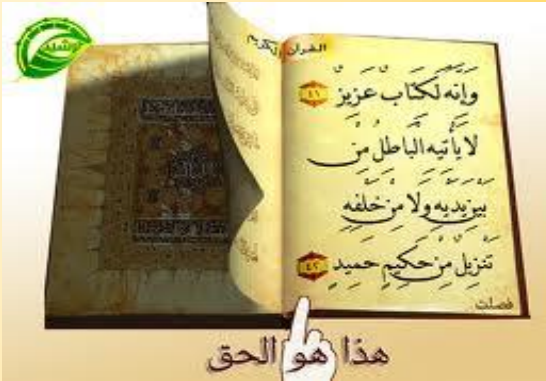 نوشيلد
القرآن الكريم
وَإِنَّهُ لَكِتَابٌ عَزِيزٌ ٤١
لَا يَأْتِيهِ الْبَاطِلُ مِن
بَيْنِ يَدَيْهِ وَلَا مِنْ خَلْفِهِ
تَنزِيلٌ مِّنْ حَكِيمٍ حَمِيدٍ ٤٢
فصلت
هذا هو الحق